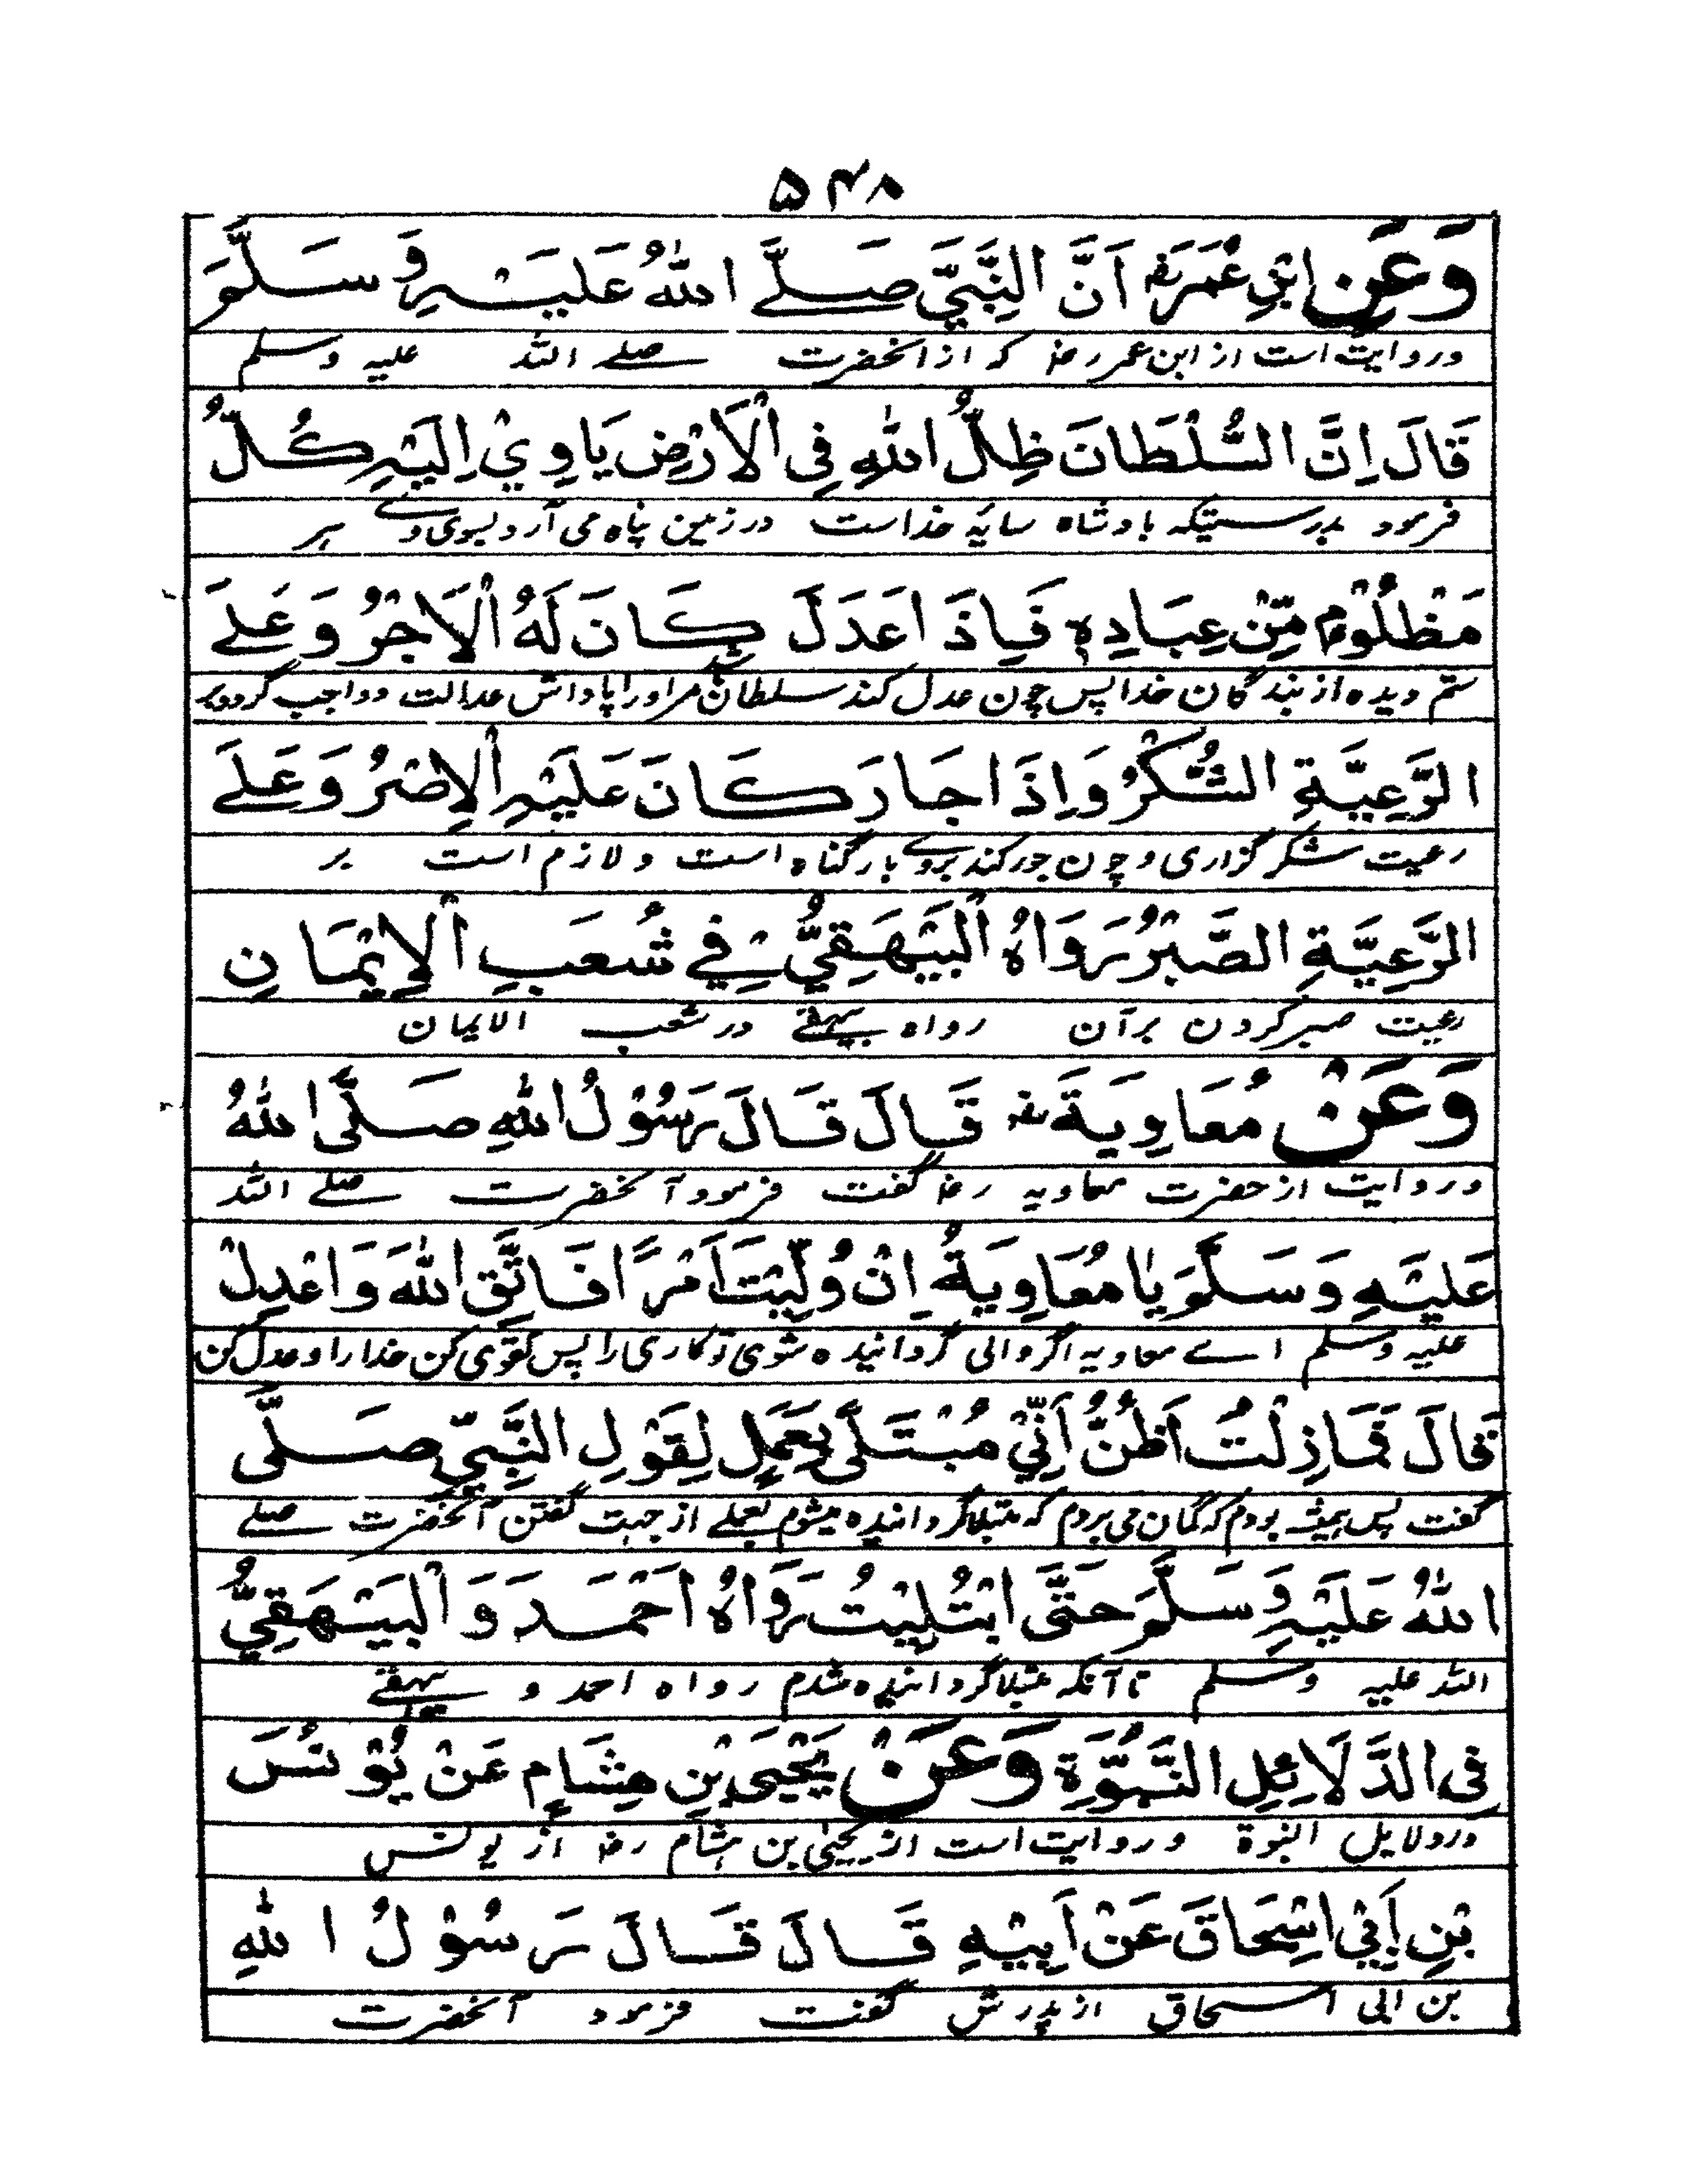 ۵۴۸
وَعَنِ ابْنِ عُمَرَ رض اَنَّ النَّبِيَّ صَلَّے اللّٰهُ عَلَيْهِ وَسَلَّمَ
و روایت است از ابن عمر رض که از آنحضرت صلے اللّٰه علیه وسلم
قَالَ اِنَّ السُّلْطَانَ ظِلُّ اللّٰهِ فِی الْاَرْضِ يَاوِيْ اِلَيْهِ كُلُّ
فرمود بدرستیکه بادشاه سایۀ خداست در زمین پناه می آرد بسوی وے هر
مَظْلُوْمٍ مِّنْ عِبَادِهٖ فَاِذَا عَدَلَ كَانَ لَهُ الْاَجْرُ وَعَلَے
ستم دیده از بندگان خدا پس چون عدل کند سلطان باشد مر او را پاداش عدالت و واجب گردد بر
الرَّعِيَّةِ الشُّكْرُ وَاِذَا جَارَ كَانَ عَلَيْهِ الْاِصْرُ وَعَلَے
رعیت شکر گزاری و چون جور کند بروے بار گناه است و لازم است بر
الرَّعِيَّةِ الصَّبْرُ رَوَاهُ الْبَيْهَقِيُّ فِيْ شُعَبِ الْاِيْمَانِ
رعیت صبر کردن برآن رواه بیهقے در شعب الایمان
وَعَنْ مُعَاوِيَةَ رض قَالَ قَالَ رَسُوْلُ اللّٰهِ صَلَّی اللّٰهُ
و روایت از حضرت معاویه رض گفت فرمود آنحضرت صلے اللّٰه
عَلَيْهِ وَسَلَّمَ يٰا مُعَاوِيَةُ اِنْ وُلِّيْتَ اَمْرًا فَاتَّقِ اللّٰهَ وَاعْدِلْ
علیه وسلم اے معاویه اگر والی گردانیده شوی تو کاری را پس تقوی کن خدا را و عدل کن
قَالَ فَمَا زِلْتُ اَظُنُّ اَنِّيْ مُبْتَلًی بِعَمَلٍ لِقَوْلِ النَّبِيِّ صَلَّی
گفت پس همیشه بودم که گمان می بردم که مبتلا گردانیده میشوم بعملے از جهت گفتن آنحضرت صلے
اللّٰهُ عَلَيْهِ وَسَلَّمَ حَتَّی ابْتُلِيْتُ رَوَاهُ اَحْمَدَ وَالْبَيْهَقِيُّ
اللّٰه علیه وسلم تا آنکه مبتلا گردانیده شدم رواه احمد و بیهقے
فِی الدَّلَائِلِ النُّبُوَّةِ وَعَنْ يَحْيَی بْنِ هِشَامٍ عَنْ يُوْنُسَ
در دلایل النبوة و روایت است از یحیی بن هشام رض از یونس
بْنِ اَبِيْ اِسْحَاقَ عَنْ اَبِيْهِ قَالَ قَالَ رَسُوْلُ اللّٰهِ
بن ابی اسحاق از پدرش گفت فرمود آنحضرت